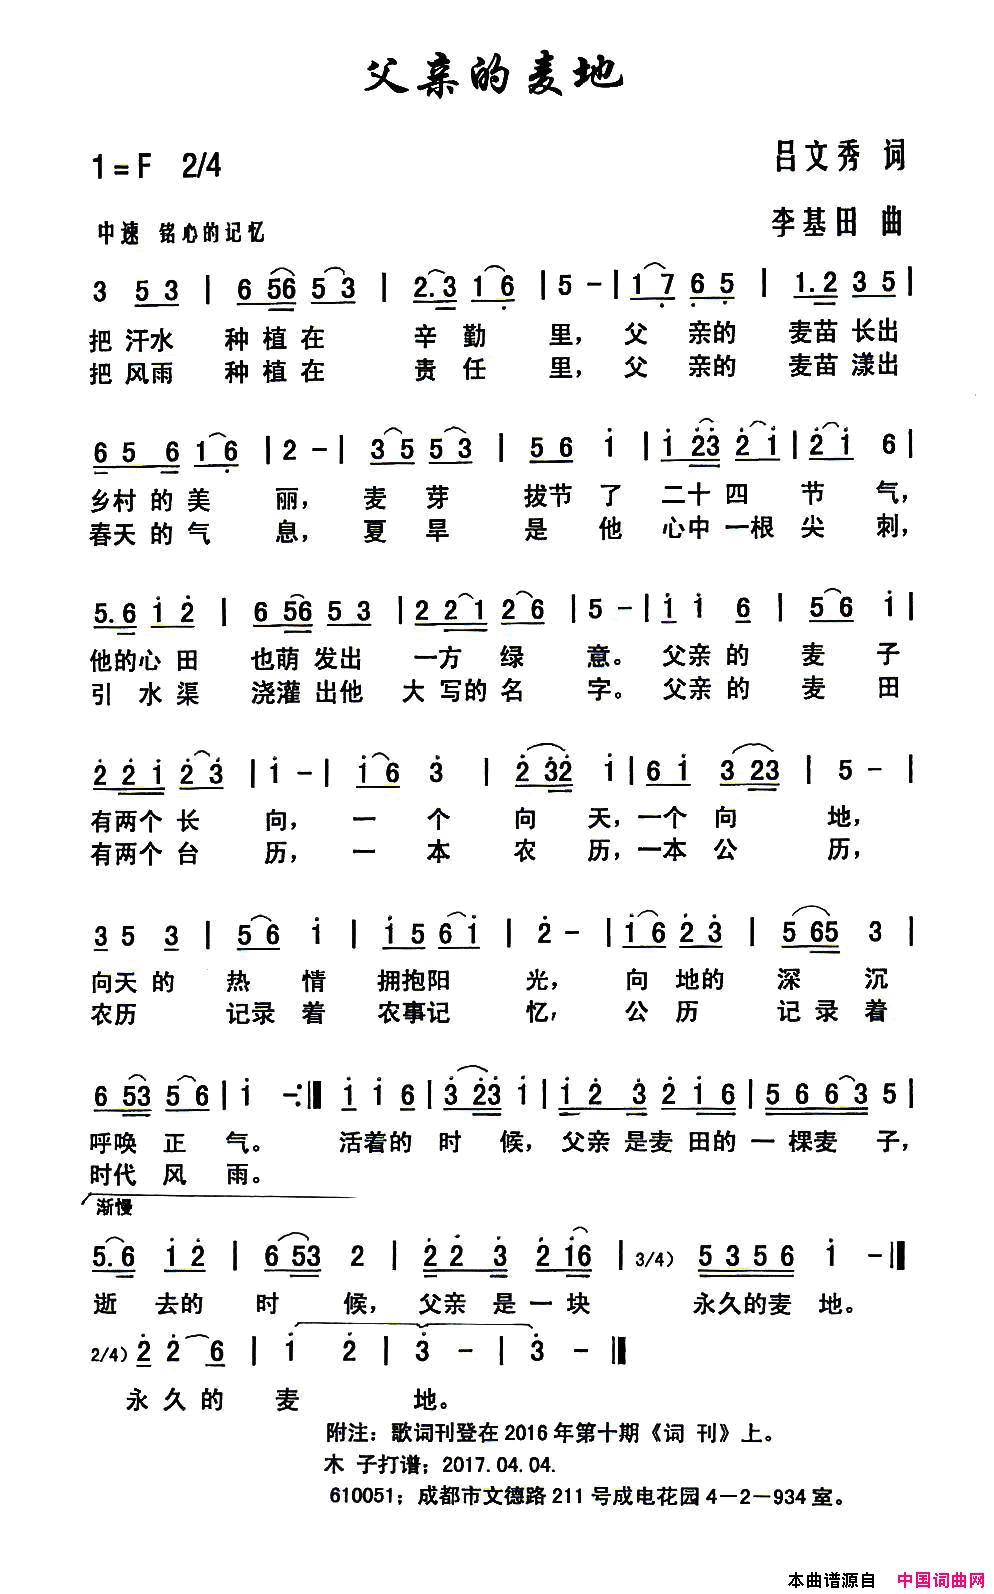 父亲的麦地
1=F 2/4
吕文秀 词
中速 铭心的记忆
李基田 曲
3 5 3 | 6 56 5 3 | 2. 3 1 6 | 5 - | 1 7 6 5 | 1. 2 3 5 |
把 汗水 种 植 在 辛 勤 里, 父 亲的 麦苗 长出
把 风雨 种 植 在 责 任 里, 父 亲的 麦苗 漾出
6 5 6 1 6 | 2 - | 3 5 5 3 | 5 6 1 | 1 23 2 1 | 2 1 6 |
乡村 的 美 丽, 麦 芽 拔节 了 二十 四 节 气,
春天 的 气 息, 夏 旱 是 他 心中 一根 尖 刺,
5. 6 1 2 | 6 56 5 3 | 2 2 1 2 6 | 5 - | 1 1 6 | 5 6 1 |
他的 心 田 也萌 发出 一方 绿 意。 父亲 的 麦 子
引 水 渠 浇灌 出他 大 写的 名 字。 父亲 的 麦 田
2 2 1 2 3 | 1 - | 1 6 3 | 2 32 1 | 6 1 3 23 | 5 - |
有两个 长 向, 一 个 向 天, 一个 向 地,
有两个 台 历, 一 本 农 历, 一本 公 历,
3 5 3 | 5 6 1 | 1 5 6 1 | 2 - | 1 6 2 3 | 5 65 3 |
向天 的 热 情 拥抱阳 光, 向 地的 深 沉
农历 记录 着 农事记 忆, 公 历 记 录 着
6 53 5 6 | 1 - :| 1 1 6 | 3 23 1 | 1 2 3 2 1 6 | 5 6 6 3 5 |
呼唤 正 气。 活着的 时 候, 父亲 是麦 田的 一 棵麦 子,
时代 风 雨。
渐慢
5. 6 1 2 | 6 53 2 | 2 2 3 2 16 | 3/4) 5 3 5 6 1 - |
逝 去的 时 候, 父亲 是 一 块 永久的麦 地。
2/4) 2 2 6 | 1 2 | 3 - | 3 - |
永 久 的 麦 地。
附注: 歌词刊登在2016年第十期《词 刊》上。
木 子打谱; 2017.04.04.
610051; 成都市文德路211号成电花园4-2-934室。
本曲谱源自 中国词曲网